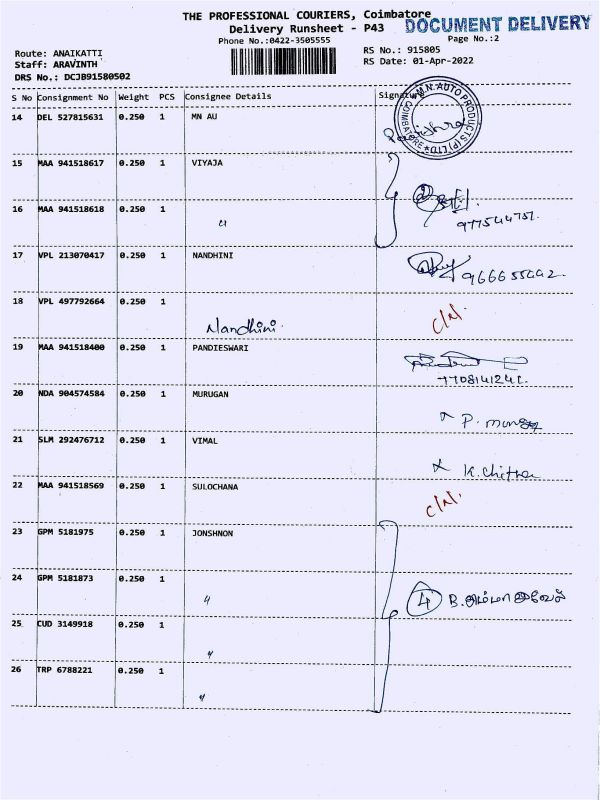 THE PROFESSIONAL COURIERS, Coimbatore
DOCUMENT DELIVERY
Delivery Runsheet - P43
Phone No.:0422-3505555
Page No.:2
Route: ANAIKATTI
RS No.: 915805
Staff: ARAVINTH
RS Date: 01-Apr-2022
DRS No.: DCJB91580502
S No Consignment No Weight PCS Consignee Details Signature
M.N.AUTO PRODUCTS (P) LTD COIMBATORE
14 DEL 527815631 0.250 1 MN AU
15 MAA 941518617 0.250 1 VIYAJA
16 MAA 941518618 0.250 1
"
17 VPL 213070417 0.250 1 NANDHINI
18 VPL 497792664 0.250 1
Nandhini. C/N.
19 MAA 941518400 0.250 1 PANDIESWARI
20 NDA 904574584 0.250 1 MURUGAN
21 SLM 292476712 0.250 1 VIMAL
K. Chithra
22 MAA 941518569 0.250 1 SULOCHANA
C/N.
23 GPM 5181975 0.250 1 JONSHNON
24 GPM 5181873 0.250 1
" 4
25 CUD 3149918 0.250 1
"
26 TRP 6788221 0.250 1
"